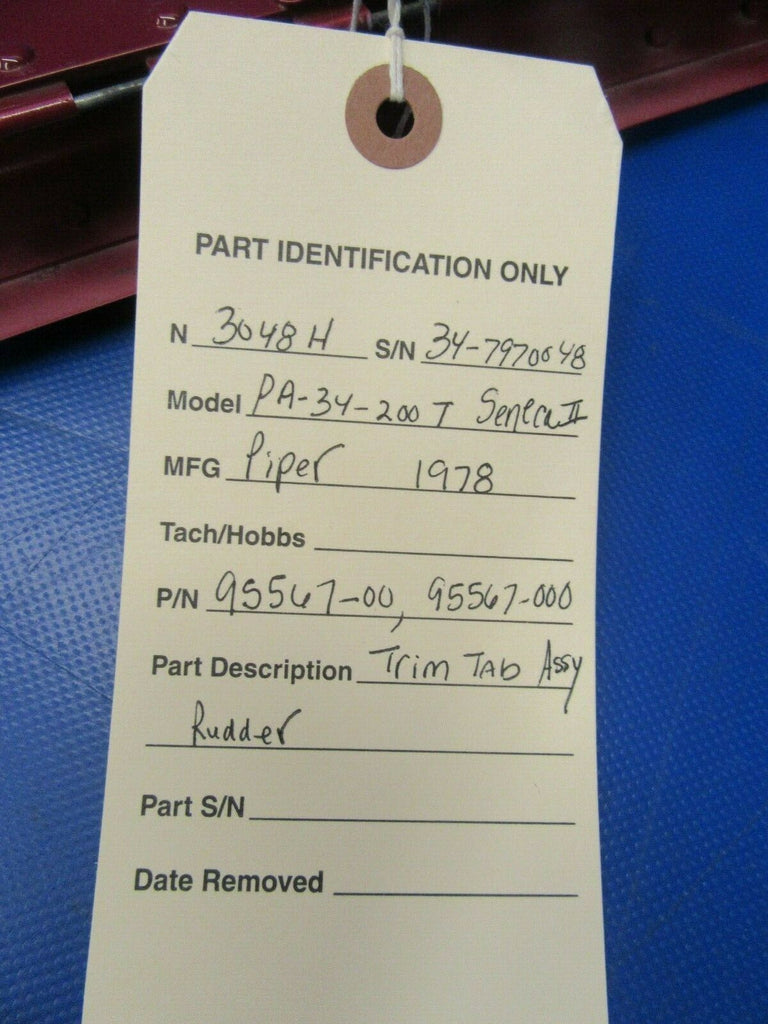 PART IDENTIFICATION ONLY
N 3048H S/N 34-7970048
Model PA-34-200T Seneca II
MFG Piper 1978
Tach/Hobbs
P/N 95567-00, 95567-000
Part Description Trim Tab Assy
Rudder
Part S/N
Date Removed